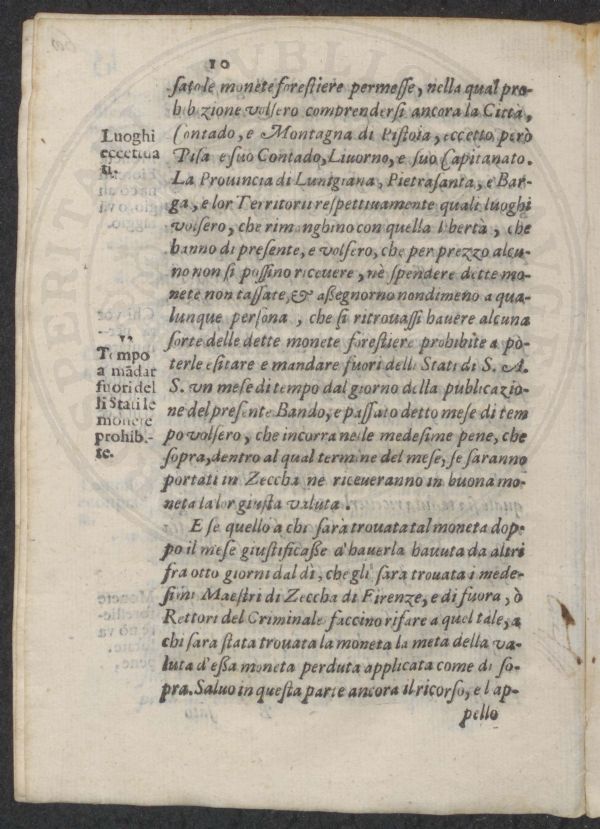 10
satole monete forestiere permesse, nella qual pro-
hibizione volsero comprendersi ancora la Citta,
Contado, e Montagna di Pistoia, eccetto però
Pisa e suo Contado, Liuorno, e suo Capitanato.
La Prouincia di Lunigiana, Pietrasanta, e Bar-
ga, e lor Territorii respettiuamente quali luoghi
volsero, che rimanghino con quella libertà, che
hanno di presente, e volsero, che per prezzo alcu-
no non si possino riceuere, nè spendere dette mo-
nete non tassate, & assegnorno nondimeno a qua-
lunque persona, che si ritrouassi hauere alcuna
sorte delle dette monete forestiere prohibite a po-
terle esitare e mandare fuori delli Stati di S. A.
S. vn mese di tempo dal giorno della publicazio-
ne del presente Bando, e passato detto mese di tem
po volsero, che incorra nelle medesime pene, che
sopra, dentro al qual termine del mese, se saranno
portati in Zeccha ne riceueranno in buona mo-
neta la lor giusta valuta.
E se quello a chi sarà trouata tal moneta dop-
po il mese giustificasse d'hauerla hauuta da altri
fra otto giorni dal dì, che gli sara trouata i mede-
simi Maestri di Zeccha di Firenze, e di fuora, ò
Rettori del Criminale faccino rifare a quel tale, a
chi sara stata trouata la moneta la meta della va-
luta d'essa moneta perduta applicata come di so-
pra. Saluo in questa parte ancora il ricorso, e l ap-
pello
Luoghi
eccettua
ti.
Tempo
a mãdar
fuori del
li Stati le
monete
prohibi-
te.